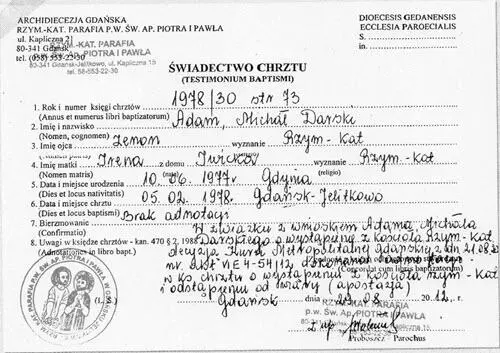 ARCHIDIECEZJA GDAŃSKA
RZYM.-KAT. PARAFIA P.W. ŚW. AP. PIOTRA I PAWŁA
ul. Kapliczna 21
80-341 Gdańsk
tel. (058) 553-22-30
RZYM.-KAT. PARAFIA
p.w. ŚW. AP. PIOTRA I PAWŁA
80-341 Gdańsk-Jelitkowo, ul. Kapliczna 15
tel. 58-553-22-30
DIOECESIS GEDANENSIS
ECCLESIA PAROECIALIS
S.
in
ŚWIADECTWO CHRZTU
(TESTIMONIUM BAPTISMI)
1. Rok i numer księgi chrztów 1978/30 str 73
(Annus et numerus libri baptizatorum)
2. Imię i nazwisko Adam, Michał Darski
(Nomen, cognomen)
3. Imię ojca Zenon wyznanie Rzym-kat
4. Imię matki Irena z domu wyznanie Rzym-kat
(Nomen matris) (religio)
5. Data i miejsce urodzenia 10.06.1977r Gdynia
(Dies et locus nativitatis)
6. Data i miejsce chrztu 05.02.1978. Gdańsk-Jelitkowo
(Dies et locus baptismi)
7. Bierzmowanie Brak adnotacji
(Confirmatio)
8. Uwagi w księdze chrztów - kan. 470 § 2, 1988
(Adnotationes in libro bapt.)
W związku z wnioskiem Adama Michała
Darskiego o wystąpienie z kościoła Rzym-kat
decyzją Kurii Metropolitalnej Gdańskiej z dn 21.08.12
nr dokonano adnotacji
(Concordat cum libris baptizatorum)
w ks chrztu o wystąpieniu z kościoła rzym-kat
i odstąpieniu od wiary (apostazja)
Gdańsk dnia 29.08 2012. r.
(L. S.)
RZYM.-KAT. PARAFIA
p.w. ŚW. AP. PIOTRA I PAWŁA
Proboszcz Parochus